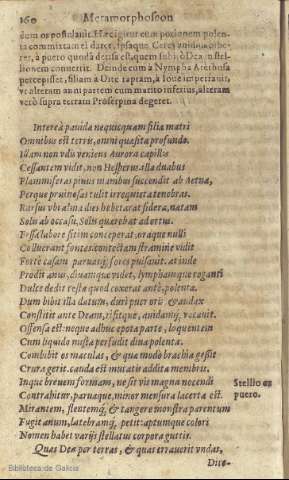 160 Metamorphoseon
dum os postulauit. Hæc igitur cum potionem polen-
ta commixtam ei daret, ipsaque Ceres auidius bibe-
ret, à puero quodã derisa est, quem subitò Dea in stel-
lionem conuertit. Deinde cum à Nympha Arethusa
percepisset, filiam à Dite raptam, à Ioue imperauit,
vt alteram anni partem cum marito inferius, alteram
verò supra terram Proserpina degeret.
Intereà pauida nequicquam filia matri
Omnibus est terris, omni quæsita profundo.
Illam non vdis veniens Aurora capillis
Cessantem vidit, non Hesperus. illa duabus
Flammiferas pinus manibus succendit ab Aetna,
Perque pruinosas tulit irrequieta tenebras.
Rursus vbi alma dies hebetarat sidera, natam
Solis ab occasu, Solis quærebat ad ortus.
Fessa labore sitim conceperat, oraque nulli
Colluerant fontes. cùm tectam stramine vidit
Fortè casam paruasque fores pulsauit. at inde
Prodit anus, diuamque videt, lymphamque roganti
Dulce dedit testa quod coxerat antè polenta.
Dum bibit illa datum, duri puer oris & audax
Constitit ante Deam, risitque, auidamque vocauit.
Offensa est: neque adhuc epota parte, loquentem
Cum liquido mista perfudit diua polenta.
Combibit os maculas, & quæ modò brachia gessit
Crura gerit. cauda est mutatis addita membris.
Inque breuem formam, ne sit vis magna nocendi
Contrahitur, paruaque minor mensura lacerta est.
Stellio ex
puero.
Mirantem, flentemque, & tangere monstra parentum
Fugit anum, latebramque petit: aptumque colori
Nomen habet varijs stellatus corpora guttis.
Quas Dea per terras, & quas errauerit vndas,
Dice-
Biblioteca de Galicia